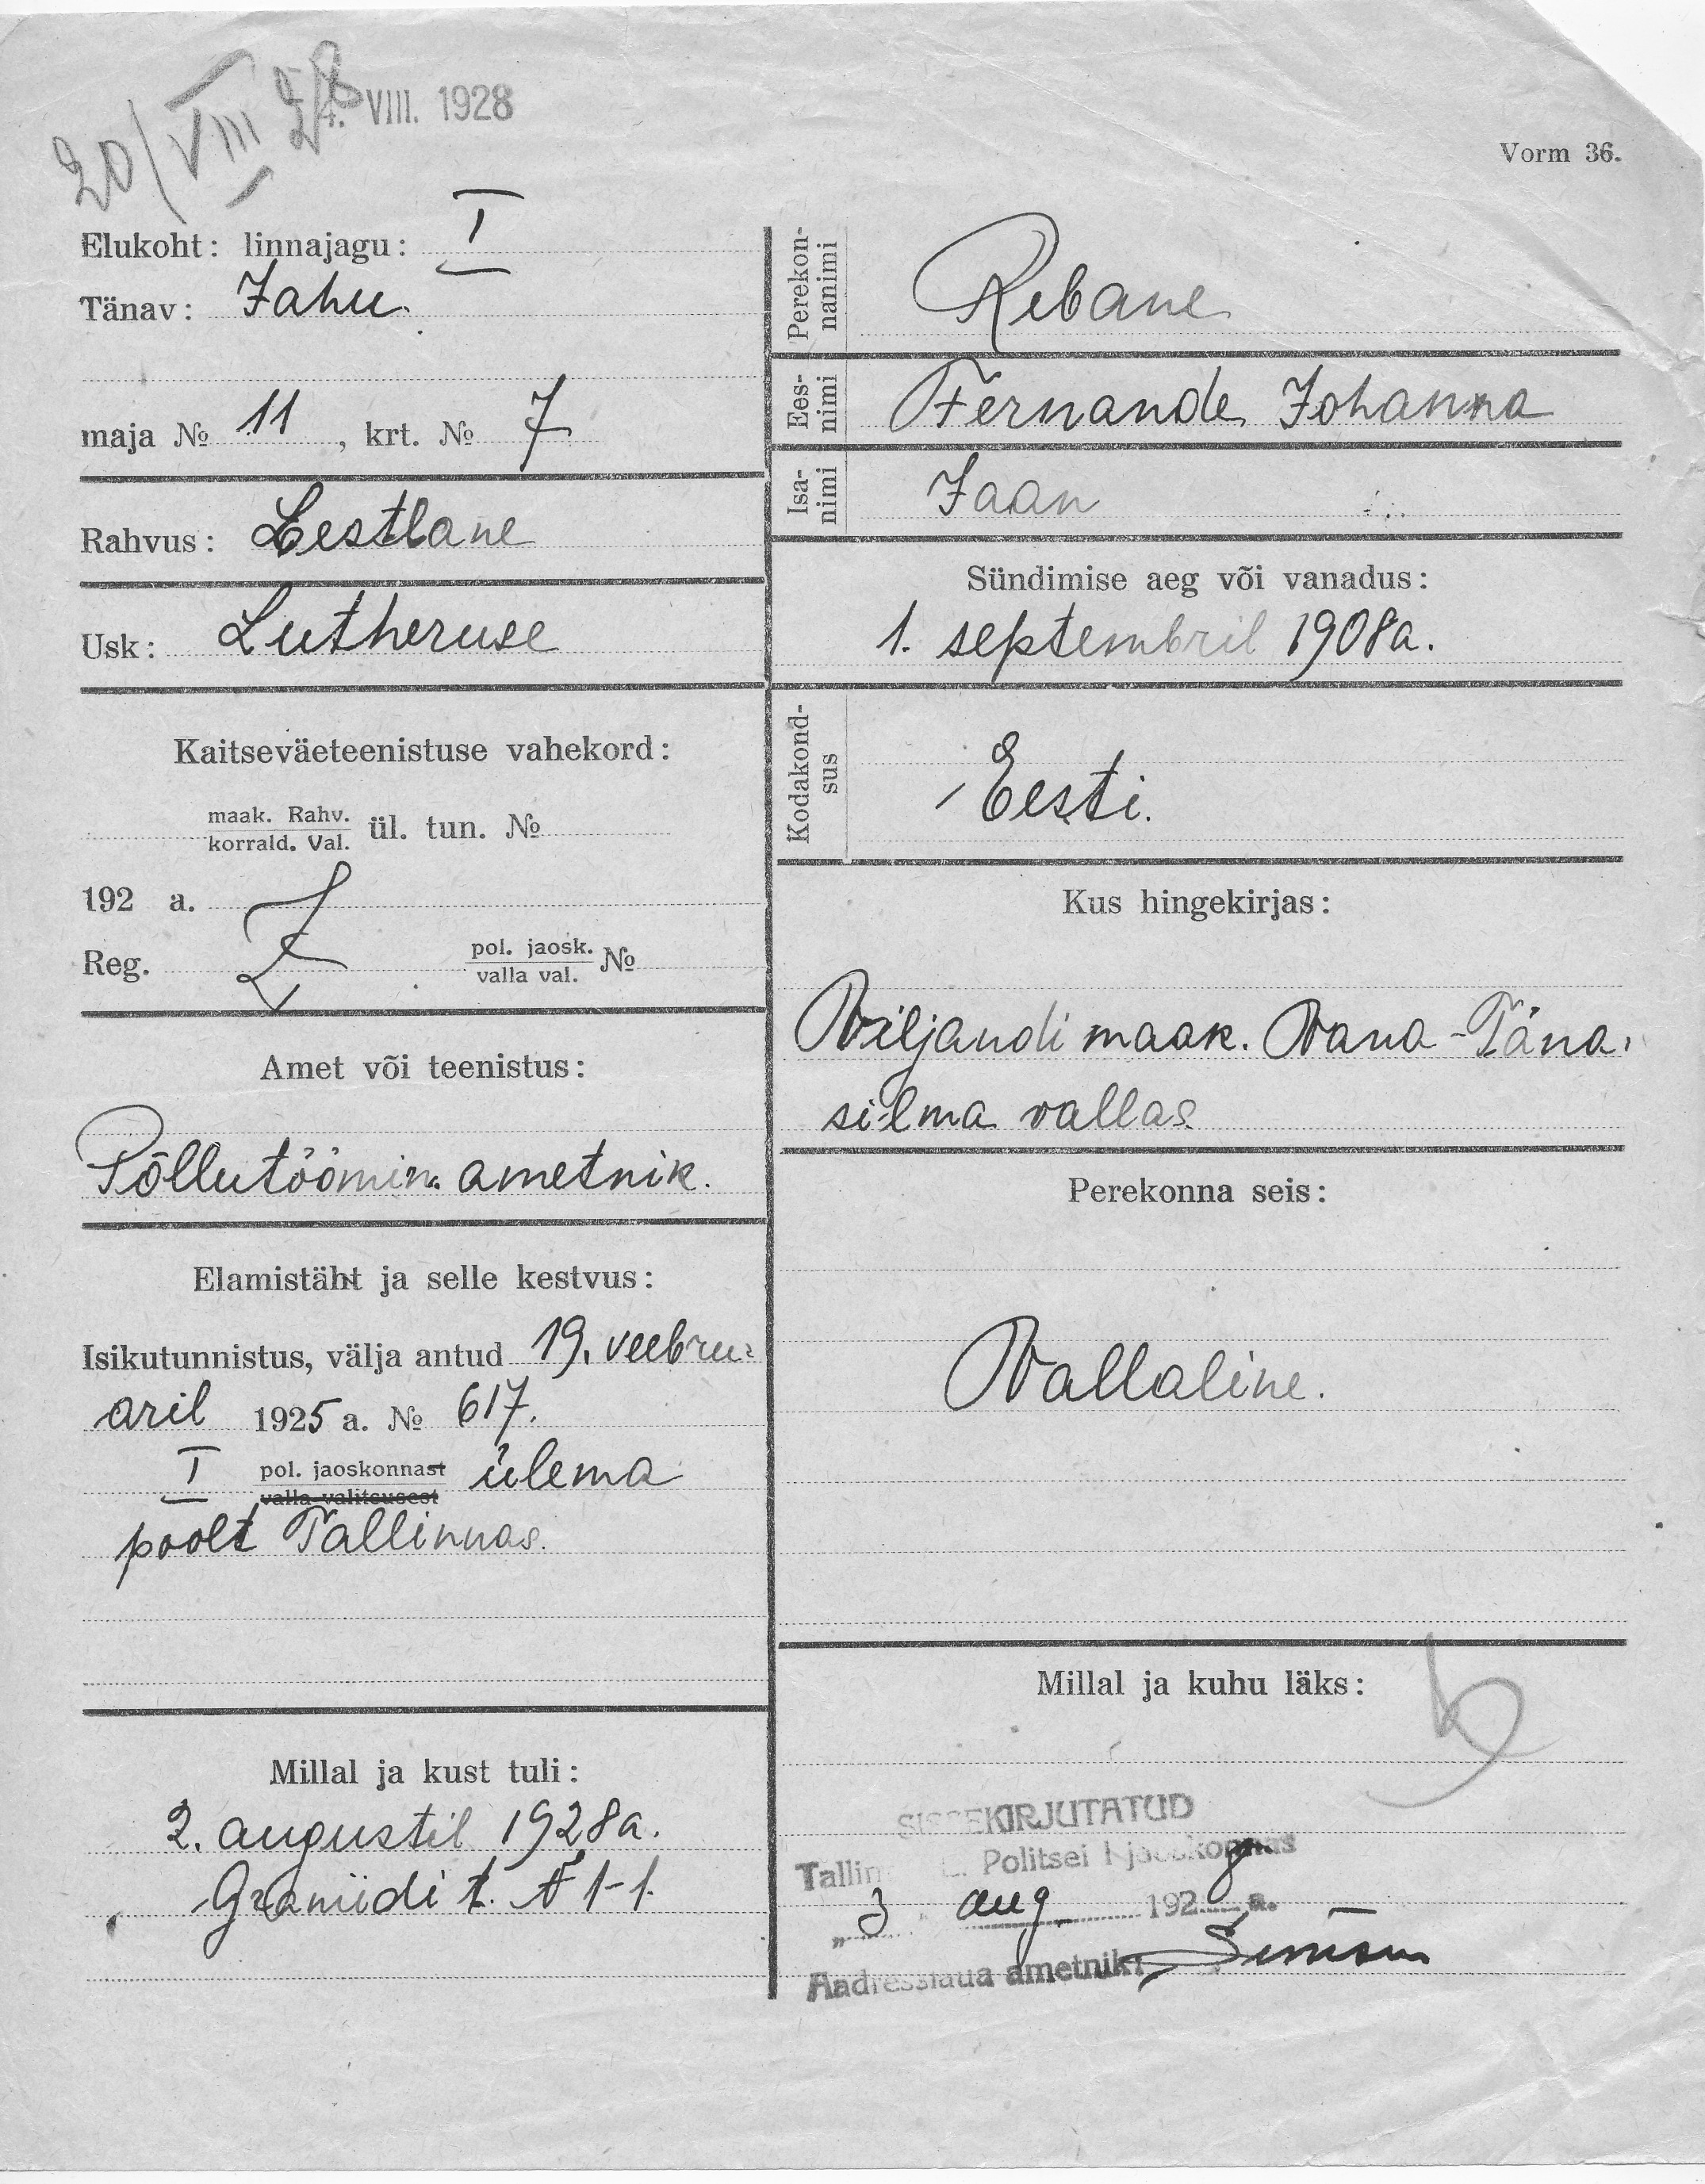 20/VIII 28
4. VIII. 1928
Vorm 36.
Elukoht: linnajagu: I
Tänav: Jahu
maja № 11, krt. № 7
Rahvus: Eestlane
Usk: Lutheruse
Kaitseväeteenistuse vahekord:
maak. Rahv.
korrald. Val. ül. tun. №
192 a.
Reg. pol. jaosk.
valla val. №
Amet või teenistus:
Põllutöömin. ametnik.
Elamistäht ja selle kestvus:
Isikutunnistus, välja antud 19. veebru-
aril 1925 a. № 617.
I pol. jaoskonnast ülema
valla valitsusest
poolt Tallinnas.
Millal ja kust tuli:
2. augustil 1928a.
Graniidi t. № 1-1.
Perekon-
nanimi
Rebane
Ees-
nimi
Fernande Johanna
Isa-
nimi
Jaan
Sündimise aeg või vanadus:
1. septembril 1908a.
Kodakond-
sus
Eesti.
Kus hingekirjas:
Wiljandi maak. Wana-Täna-
silma vallas
Perekonna seis:
Wallaline.
Millal ja kuhu läks:
SISSEKIRJUTATUD
Tallinna Politsei I jaoskonnas
„3 aug. 1928 a.
Aadresslaua ametnik: